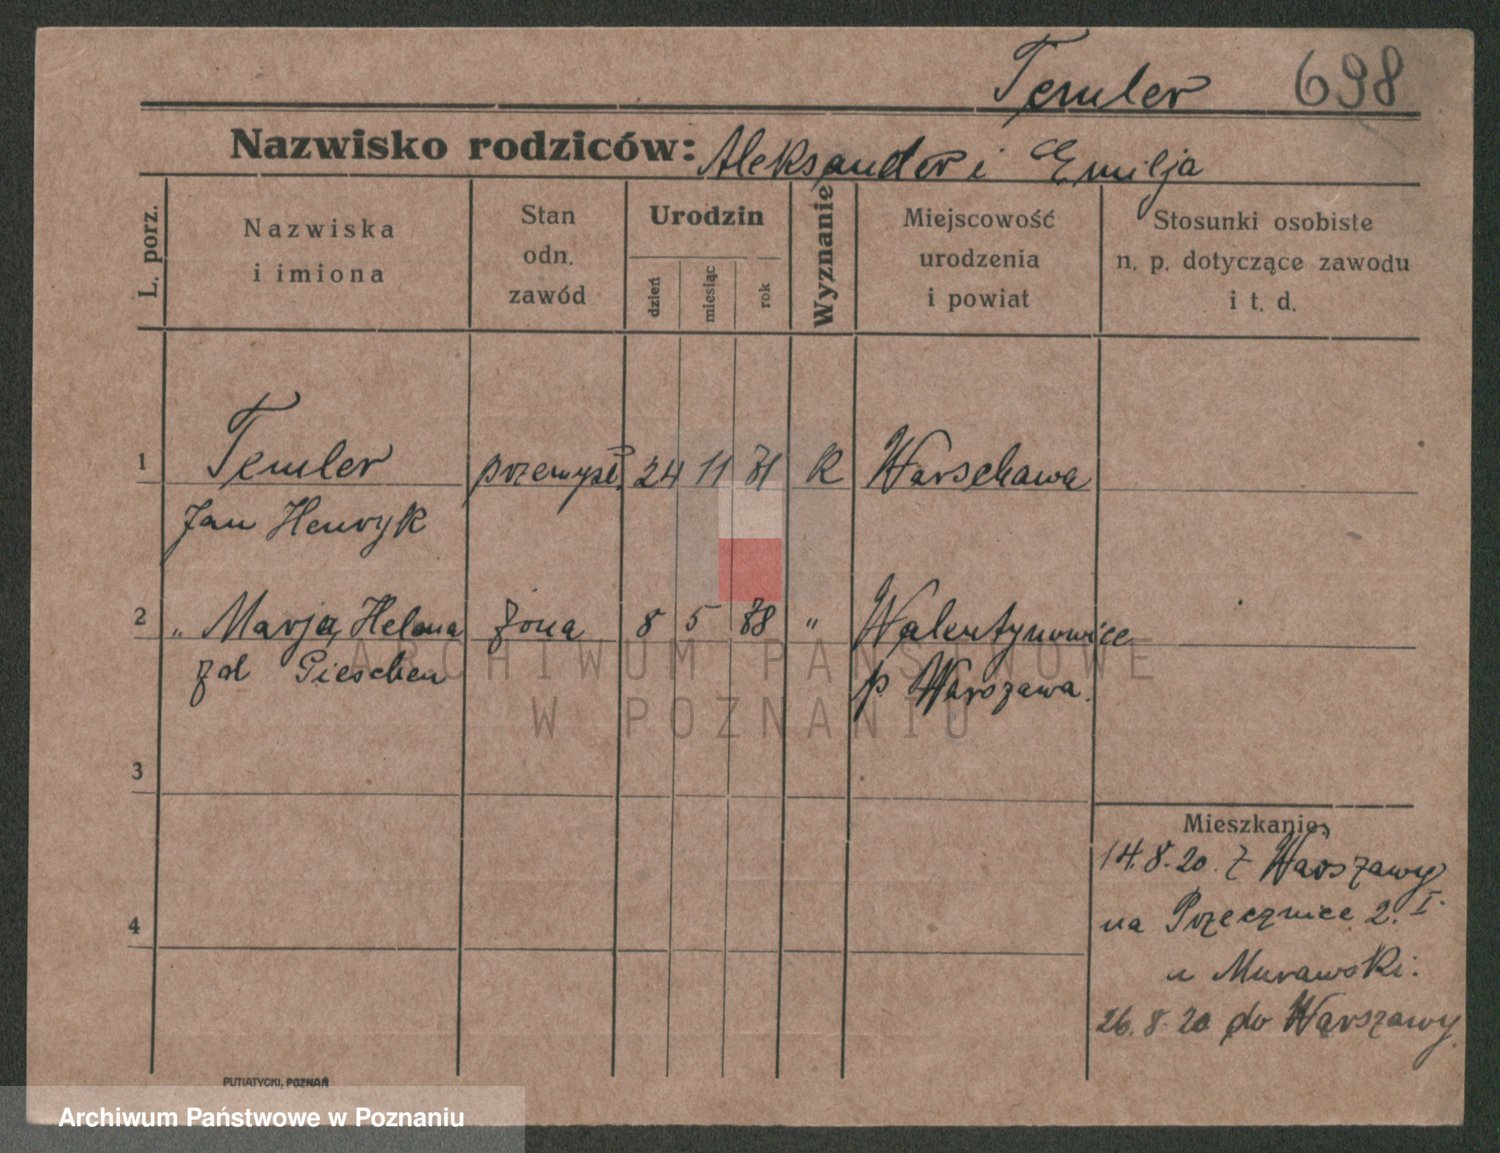 Temler 698
Nazwisko rodziców: Aleksander i Emilja
L. porz.
Nazwiska
i imiona
Stan
odn.
zawód
Urodzin
dzień
miesiąc
rok
Wyznanie
Miejscowość
urodzenia
i powiat
Stosunki osobiste
n. p. dotyczące zawodu
i t. d.
1 Temler przemysł. 24 11 71 K Warschawa
Jan Henryk
2 " Marja Helena żona 8 5 78 " Walentynowice
zd Pieschen p. Warszawa.
3
Mieszkanie
14.8.20. z Warszawy
4 na Przecznice 2. I.
u Murawski.
26.8.20 do Warszawy
PUTIATYCKI, POZNAŃ
ARCHIWUM PAŃSTWOWE
W POZNANIU
Archiwum Państwowe w Poznaniu